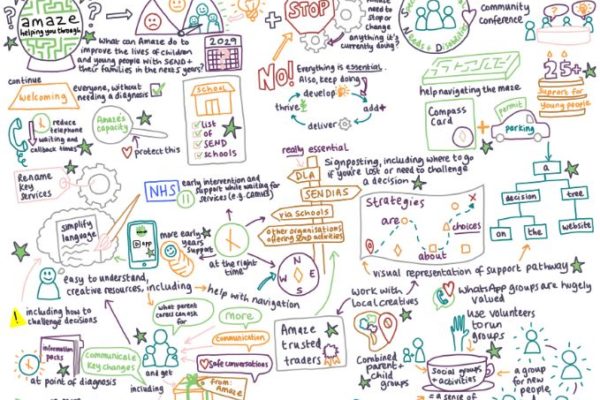 amaze
helping you through
What can Amaze do to
improve the lives of children
and young people with SEND +
their families in the next 5 years?
2029
STOP
Amaze
need to
stop or
change
anything it's
currently doing?
community
conference
NO!
Everything is essential.
Also, keep doing
develop
thrive
add+
deliver
help navigating the maze
25+
Support for
young people
continue
welcoming
everyone, without
needing a diagnosis
reduce
telephone
waiting and
callback times
Amaze's
capacity
protect this
SCHOOL
list
of
SEND
schools
Compass
Card
+
permit
parking
Rename
key
services
NHS
early intervention and
support while waiting for
services (e.g. CAMHS)
really essential
DLA
SENDIAS
via schools
other organisations
offering SEND activities
Signposting, including where to go
if you're lost or need to challenge
a decision
a
decision
tree
on
the
website
simplify
language
app
more early
years
support
at the right
time
N
E
S
W
Strategies
are
choices
about
visual representation of support pathway
easy to understand,
creative resources, including
help with navigation
! including how to
challenge decisions
what parent
carers can ask
for
more
communication
safe conversations
Amaze
trusted
traders
work with
local creatives
WhatsApp groups are hugely
valued
use volunteers
to run
groups
information
packs
at point of diagnosis
communicate
key changes
and get
including
from:
Amaze
Combined
parent +
child
groups
Social groups
+ activities
= a sense of
a group for
new people